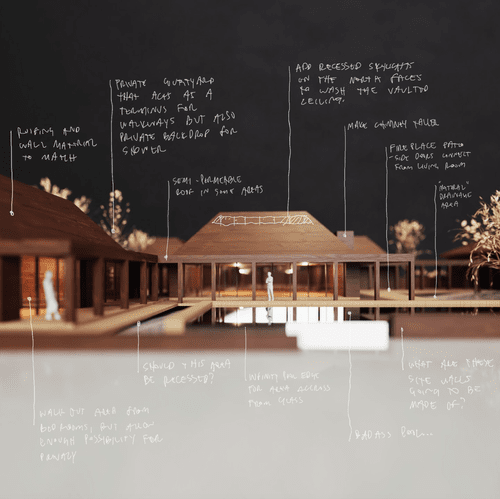 ADD RECESSED SKYLIGHTS
ON THE NORTH FACES
TO WASH THE VAULTED
CEILING.
PRIVATE COURTYARD
THAT ACTS AS A
TERMINUS FOR
WALKWAYS BUT ALSO
PRIVATE BACKDROP FOR
SHOWER
ROOFING AND
WALL MATERIAL
TO MATCH
MAKE CHIMNEY TALLER
FIREPLACE PATIO
- SIDE DOORS CONNECT
FROM LIVING ROOM
SEMI-PERMEABLE
ROOF IN SOME AREAS
"NATURAL"
DRAINAGE
AREA
SHOULD THIS AREA
BE RECESSED?
INFINITY POOL EDGE
FOR AREA ACCESS
FROM GLASS
WHAT ARE THESE
SITE WALLS
GOING TO BE
MADE OF?
WALK OUT AREA FROM
BEDROOMS, BUT ALSO
ENOUGH POSSIBILITY FOR
PRIVACY
BADASS POOL...